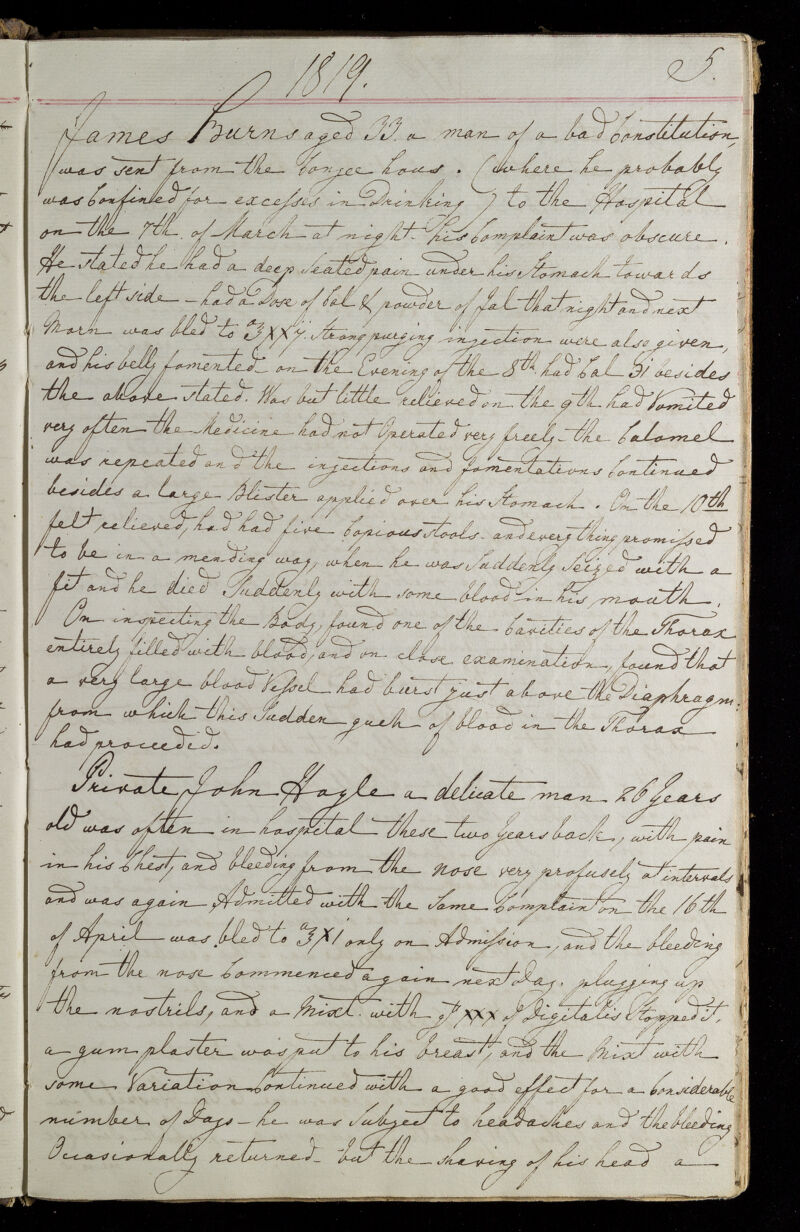 1819. 5.
James Burns aged 33. a man of a bad Constitution,
was sent from the Conjee hous. (where he probably
was Confined for excesses in Drinking) to the Hospital
on the 7th of March at night. his Complaint was obscure.
He stated he had a deep Seated pain under his Stomach towards
the left side - had a Dose of Cal & powder of Jal that night and next
Morn was bled to ℥xxij. Strong purging injection were also given,
and his belly fomented on the Evening of the 8th had Cal ʒi besides
the above stated. Was but little relieved on the 9th had Vomited
very often the Medicine had not Operated very freely - the Calomel
was repeated and the injections and fomentations Continued
besides a large Blister applied over his Stomach. On the 10th
felt relieved, had had five Copious stools. and every thing promissed
to be in a mending way, when he was Suddenly Seized with a
fit and he died Suddenly with some blood in his mouth.
On inspecting the Body, found one of the Cavities of the Thorax
entirely filled with blood, and on close examination, found that
a very large blood Vessel had burst just above the Diaphragm:
from which this Sudden gush of blood in the Thorax
had proceeded.
Private John Hogle a delicate man 26 Years
old was often in hospital these two Years back, with pain
in his Chest, and bleeding from the nose very profusely at intervals
and was again Admitted with the Same Complaint on the 16th
of April was bled to ℥xi only on Admission, and the bleeding
from the nose Commenced again next day. plugging up
the nostrils, and a Mixt. with xxx Digitalis Stopped it.
a gum plaster was put to his breast, and the Mixt with
some Variation Continued with a good effect for a Considerable
number of Days - he was Subject to headaches and the bleeding
Occasionally returned - but the shaving of his head a